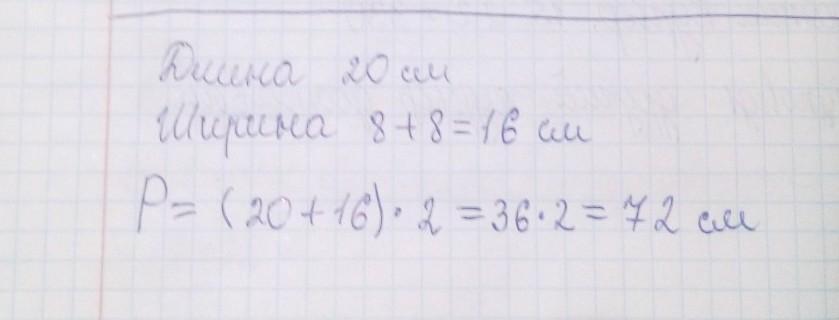 Длина 20 см
Ширина 8+8=16 см
P= (20+16)·2=36·2=72 см